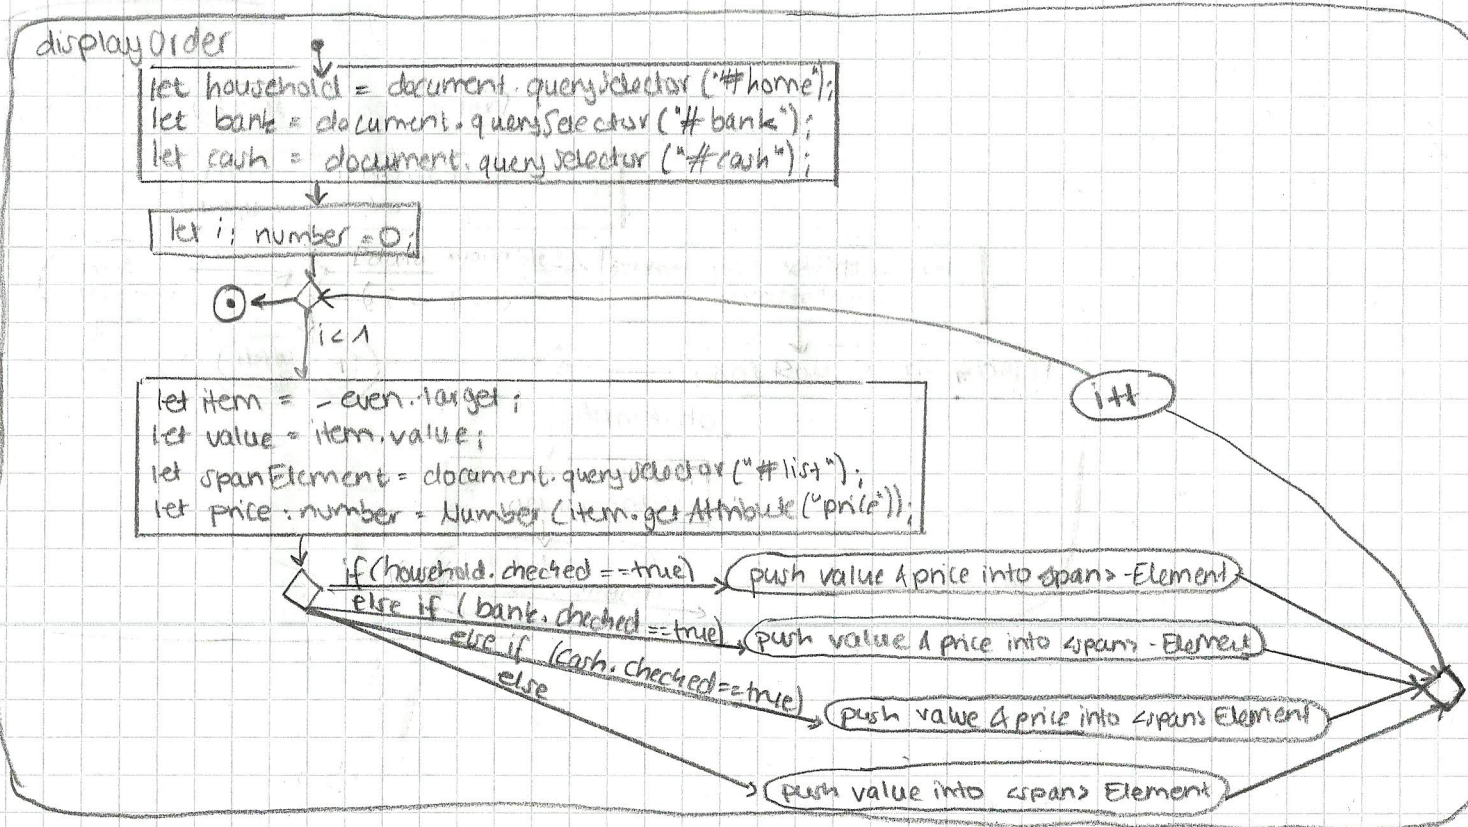 displayOrder
let household = document.querySelector("#home");
let bank = document.querySelector("#bank");
let cash = document.querySelector("#cash");
let i: number = 0;
i < 1
let item = _even.target;
let value = item.value;
i++
let spanElement = document.querySelector("#list");
let price: number = Number(item.getAttribute("price"));
if (household.checked == true)
push value & price into <span>-Element
else if (bank.checked == true)
push value & price into <span>-Element
else if (cash.checked == true)
push value & price into <span> Element
else
push value into <span> Element